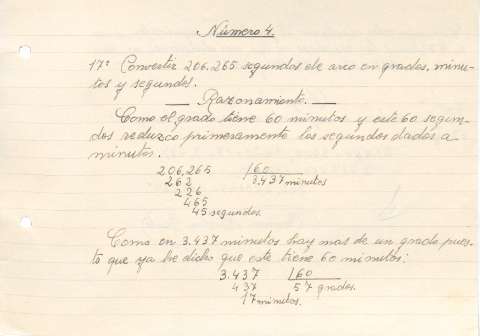 Número 4.
17º Convertir 206.265 segundos de arco en grados, minu-
tos y segundos.
— Razonamiento. —
Como el grado tiene 60 minutos y este 60 segun-
dos reduzco primeramente los segundos dados a
minutos.
206,265 | 60
262 3.437 minutos
226
465
45 segundos.
Como en 3.437 minutos hay mas de un grado pues-
to que ya he dicho que este tiene 60 minutos:
3.437 | 60
437 57 grados.
17 minutos.